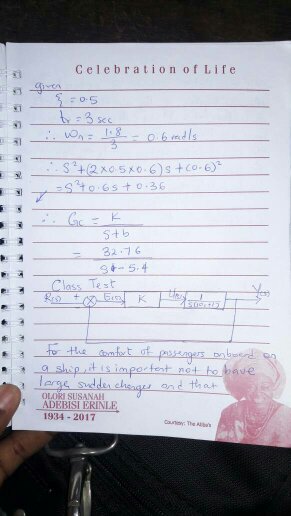 Celebration of Life
given
ξ = 0.5
tr = 3 sec
∴ Wn = 1.8/3 = 0.6 rad/s
∴ S² + (2×0.5×0.6)s + (0.6)²
= S² + 0.6s + 0.36
∴ Gc = K/(s+b)
= 32.76/(s+-5.4)
Class Test
R(s) + E(s) K U(s) Y(s)
For the comfort of passengers onboard on
a ship, it is important not to have
large sudden changes and that
OLORI SUSANAH
ADEBISI ERINLE
1934 - 2017
Courtesy: The Atiba's